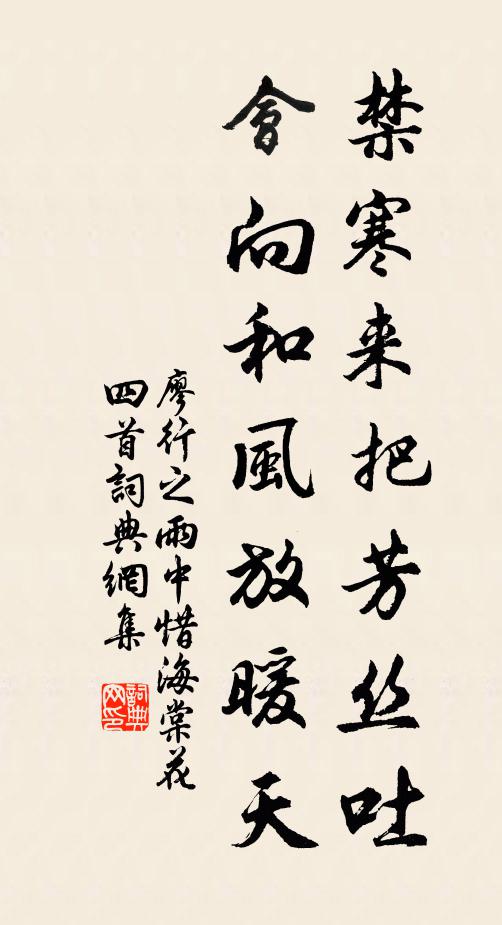 禁寒来把芳丝吐
會向和風放暖天
廖行之雨中惜海棠花
四首詞典網集
詞典
网印